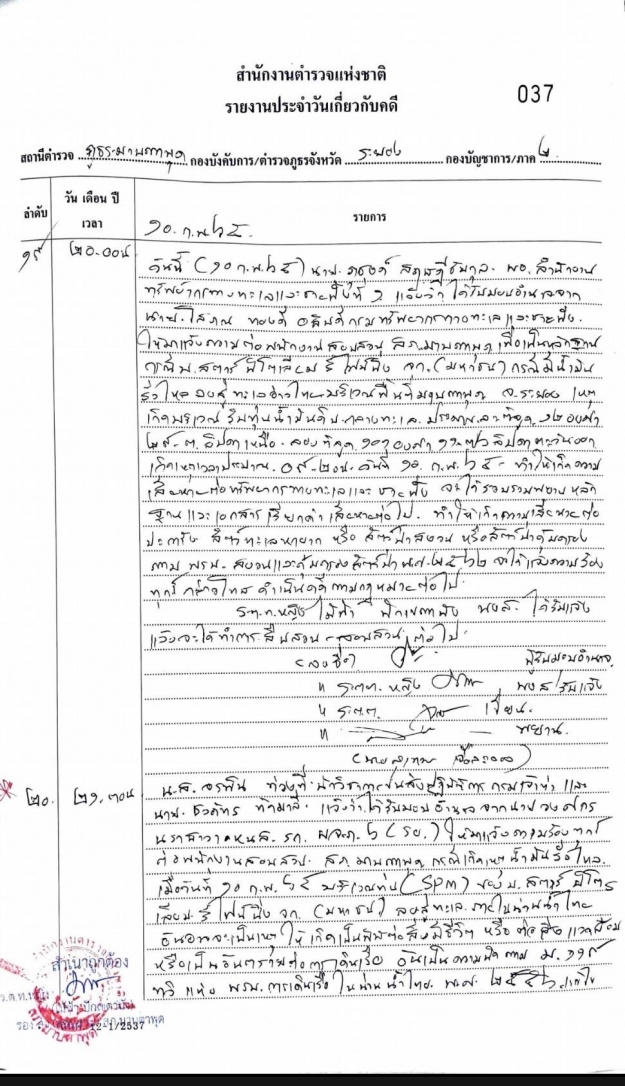 สำนักงานตำรวจแห่งชาติ
รายงานประจำวันเกี่ยวกับคดี
037
สถานีตำรวจ ภูธรมาบตาพุด กองบังคับการ/ตำรวจภูธรจังหวัด ระยอง กองบัญชาการ/ภาค ๒
ลำดับ
วัน เดือน ปี
เวลา
รายการ
๑๐.ก.พ.๖๕
๑๙
๒๐.๐๐น
วันนี้ (๑๐ ก.พ.๖๕) นาย ผอ.สำนักงาน
ทรัพยากรทางทะเลและชายฝั่งที่ ๑ แจ้งว่า ได้รับมอบอำนาจจาก
นายโสภณ ทองดี อธิบดีกรมทรัพยากรทางทะเลและชายฝั่ง
ให้มาแจ้งความต่อพนักงานสอบสวน สภ.มาบตาพุด เพื่อเป็นหลักฐาน
กรณี บ.สตาร์ ปิโตรเลียม รีไฟน์นิ่ง จก.(มหาชน) กรณีมีน้ำมัน
รั่วไหลลงสู่ทะเลอ่าวไทยบริเวณพื้นที่มาบตาพุด จ.ระยอง เหตุ
เกิดบริเวณ ทุ่นน้ำมันดิบกลางทะเล ประมาณ ละติจูด ๑๒ องศา
ลิปดาเหนือ ลองติจูด ๑๐๑ องศา ลิปดาตะวันออก
เกิดเหตุเวลาประมาณ วันที่ ๑๐ ก.พ.๖๕ ทำให้เกิดความ
เสียหายต่อทรัพยากรทางทะเลและชายฝั่ง จะได้รวบรวมพยานหลัก
ฐานและเอกสารเรียกค่าเสียหายต่อไป ทำให้เกิดความเสียหายต่อ
ปะการัง สัตว์ทะเลหายาก หรือ สัตว์ป่าสงวน หรือสัตว์ป่าคุ้มครอง
ตาม พรบ.สงวนและคุ้มครองสัตว์ป่า พ.ศ.๒๕๖๒ จะได้แจ้งความร้อง
ทุกข์ กล่าวโทษ ดำเนินคดีตามกฎหมายต่อไป
ร.ต.ท.หญิง พงส. ได้รับแจ้ง
แล้วจะได้ทำการสืบสวน สอบสวน ต่อไป
(ลงชื่อ) ผู้รับมอบอำนาจ
" ร.ต.ท.หญิง พงส/รับแจ้ง
" ร.ต.ต. เขียน
" พยาน
๒๐
๒๑.๓๐น
น.ส. อรพิน นักวิชาการขนส่งปฏิบัติการ กรมเจ้าท่า และ
นาย แจ้งว่าได้รับมอบอำนาจจากนาย
ให้มาแจ้งความร้องทุกข์
ต่อพนักงานสอบสวน สภ.มาบตาพุด กรณีเกิดเหตุน้ำมันรั่วไหล
เมื่อวันที่ ๑๐ ก.พ.๖๕ บริเวณทุ่น (SPM) ของ บ.สตาร์ ปิโตร
เลียม รีไฟน์นิ่ง จก. (มหาชน) ลงสู่ทะเล ภายในน่านน้ำไทย
อันอาจจะเป็นเหตุให้เกิดเป็นพิษต่อสิ่งมีชีวิต หรือต่อสิ่งแวดล้อม
หรือเป็นอันตรายต่อการเดินเรือ อันเป็นความผิดตาม ม.๑๑๙
ทวิ แห่ง พรบ.การเดินเรือในน่านน้ำไทย พ.ศ.
สำเนาถูกต้อง